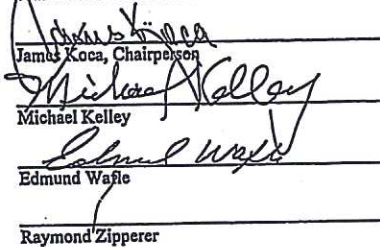 James Koca
James Koca, Chairperson
Michael Kelley
Michael Kelley
Edmund Wafle
Edmund Wafle
Raymond Zipperer